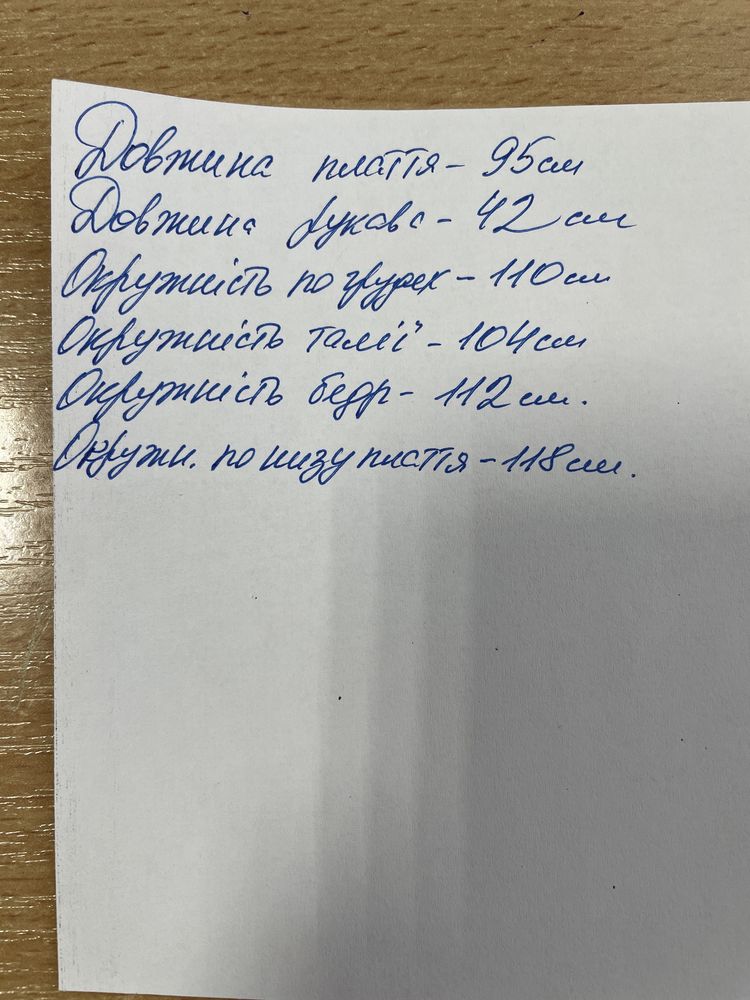 Довжина плаття - 95 см
Довжина рукава - 42 см
Окружність по грудех - 110 см
Окружність талії - 104 см
Окружність бедр - 112 см.
Окружн. по низу плаття - 118 см.